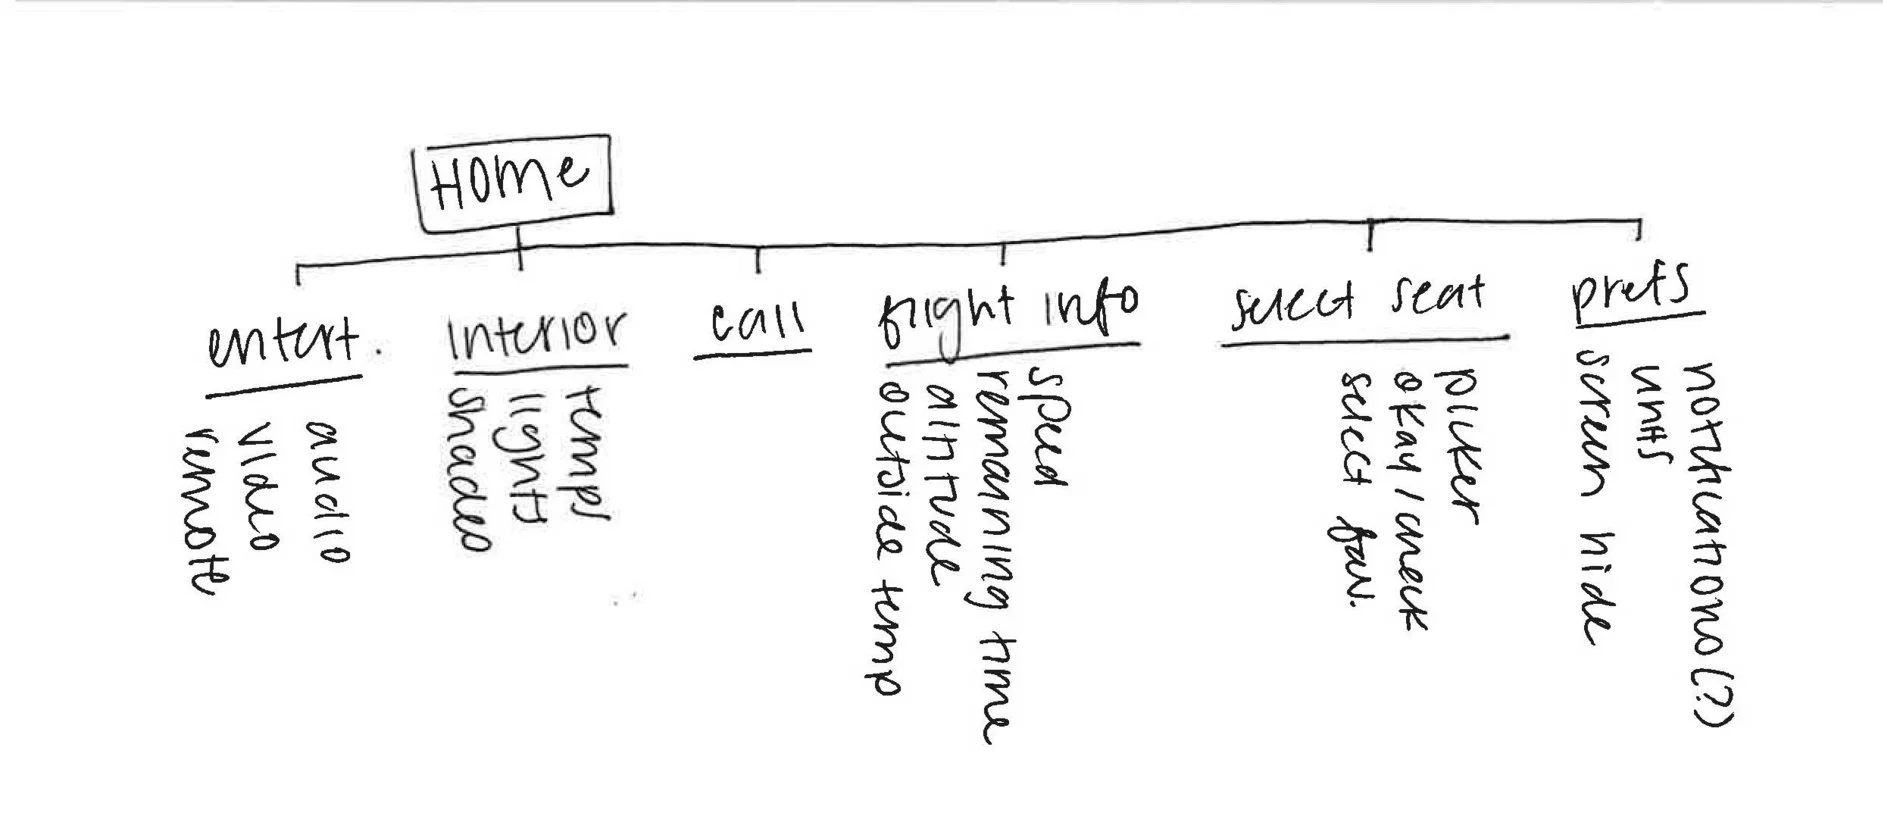 Home
entert.
audio
video
remote
interior
temps
lights
shades
call
flight info
speed
remaining time
altitude
outside temp
select seat
picker
okay / check
select fav.
prefs
notifications(?)
units
screen hide